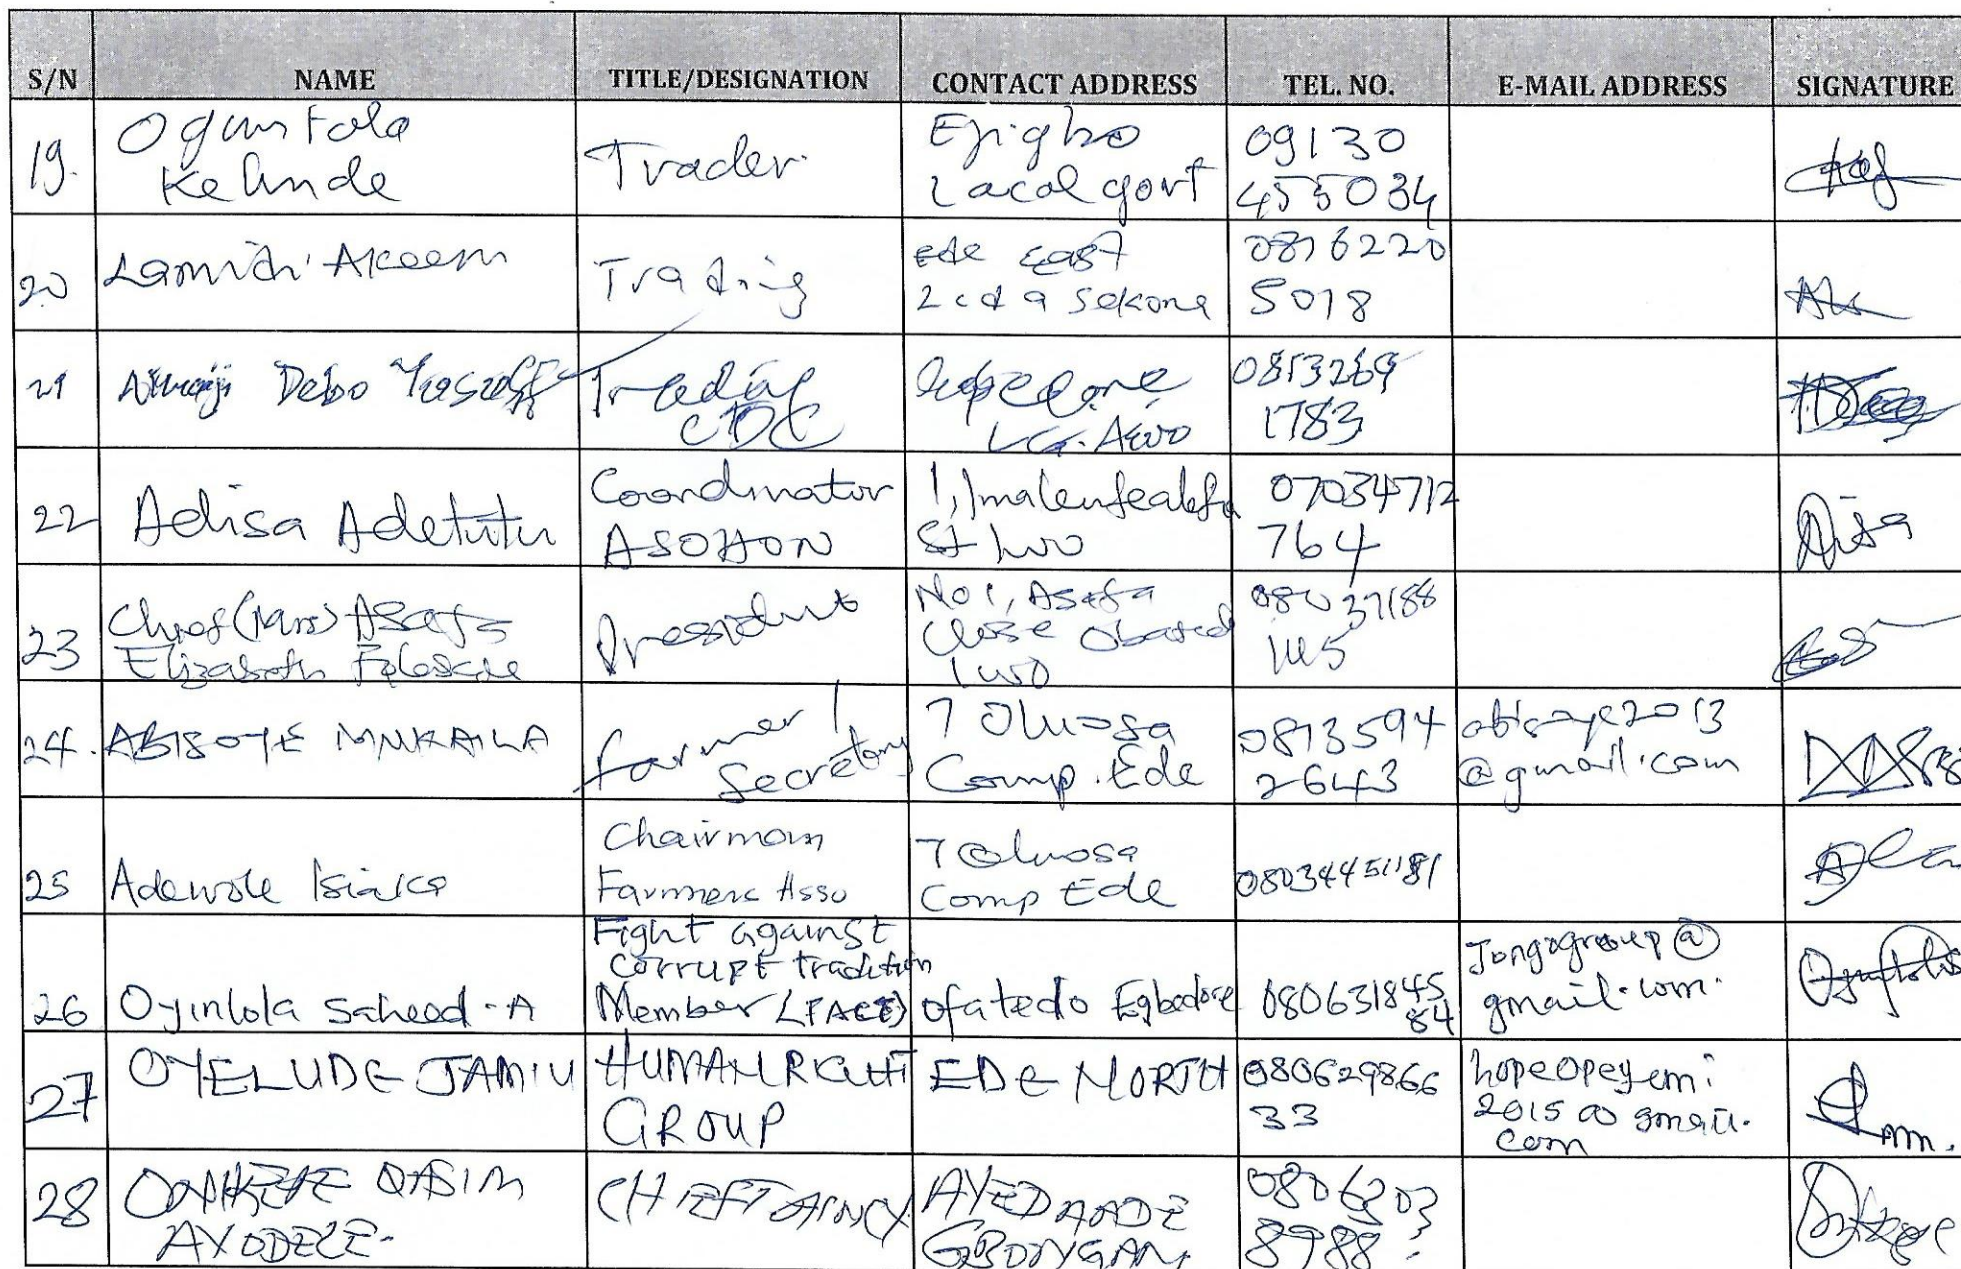 S/N NAME TITLE/DESIGNATION CONTACT ADDRESS TEL. NO. E-MAIL ADDRESS SIGNATURE
19.
Ogunfola
Kehinde
Trader
Ejigbo
Lacal govt
09130
455034
20
Lamidi Akeem
Trading
Ede East
Sekona
0816220
5018
21
Debo
Trading
CDC
0813269
1783
22
Adisa Adetutu
Coordinator
ASOHON
St Iwo
07034712
764
23
Chief (Mrs)
Elizabeth
President
No 1, Asafa
Close
Iwo
08037188
145
24.
ABISOYE MUKAILA
farmer /
Secretary
7 Oluosa
Comp. Ede
0813594
2643
abisoye2013
@gmail.com
25
Adewole Isiaka
Chairman
Farmers Asso
7 Oluosa
Comp Ede
08034451181
26
Oyinlola Saheed - A
Fight against
corrupt tradition
Member (FACT)
Ofatedo Egbedore
080631845
84
Jongagroup@
gmail.com.
27
OYELUDE JAMIU
HUMAN RIGHT
GROUP
EDE NORTH
080629866
33
hopeopeyemi
2015@gmail.
com
28
QASIM
AYODELE.
CHIEFTAINCY
AYEDAADE
GBONGAN
0806303
8988